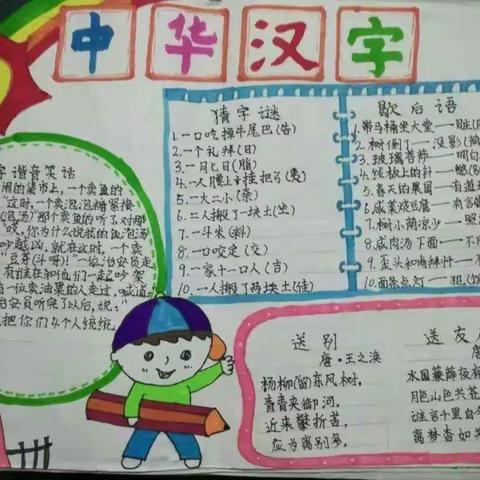 中华汉字
字谐音笑话
闹的集市上,一个卖鱼的
这时,一个卖泡泡糖紧接
泡汤)"那个卖鱼的听了对那
你为什么说我的鱼泡汤
吵越凶,就在这时,一个卖
豆芽(斗呀)!"一位治安员走
有谁在和他们一起吵架
一位卖油果的人走过,喊道
治安员听完了以后,说:"
把你们4个人统统
猜字谜
1.一口吃掉牛尾巴(告)
2.一个礼拜(日)
3.一月七日(脂)
4.一人腰上挂把弓(夷)
5.一大二小(奈)
6.二人搬了一块土(坐)
7.一斗米(料)
8.一口咬定(交)
9.一家十一口人(吉)
10.一人搬了两块土(佳)
歇后语
1.带马桶坐大堂——赃
2.树倒了——没影(
3.玻璃菩萨——明白
4.线板上的针——
5.春天的果园——有道
6.咸菜烧豆腐——有言
7.树小荫凉少——照
8.咸肉汤下面——不用
9.歪头和尚拜忏——不
10.面条点灯——犯(
送别
唐·王之涣
杨柳(留)东风树,
青青夹御河。
近来攀折苦,
应为离别多。
送友人
唐
水国蒹葭夜有
月色山色共苍
谁言千里自今
离梦杳如关